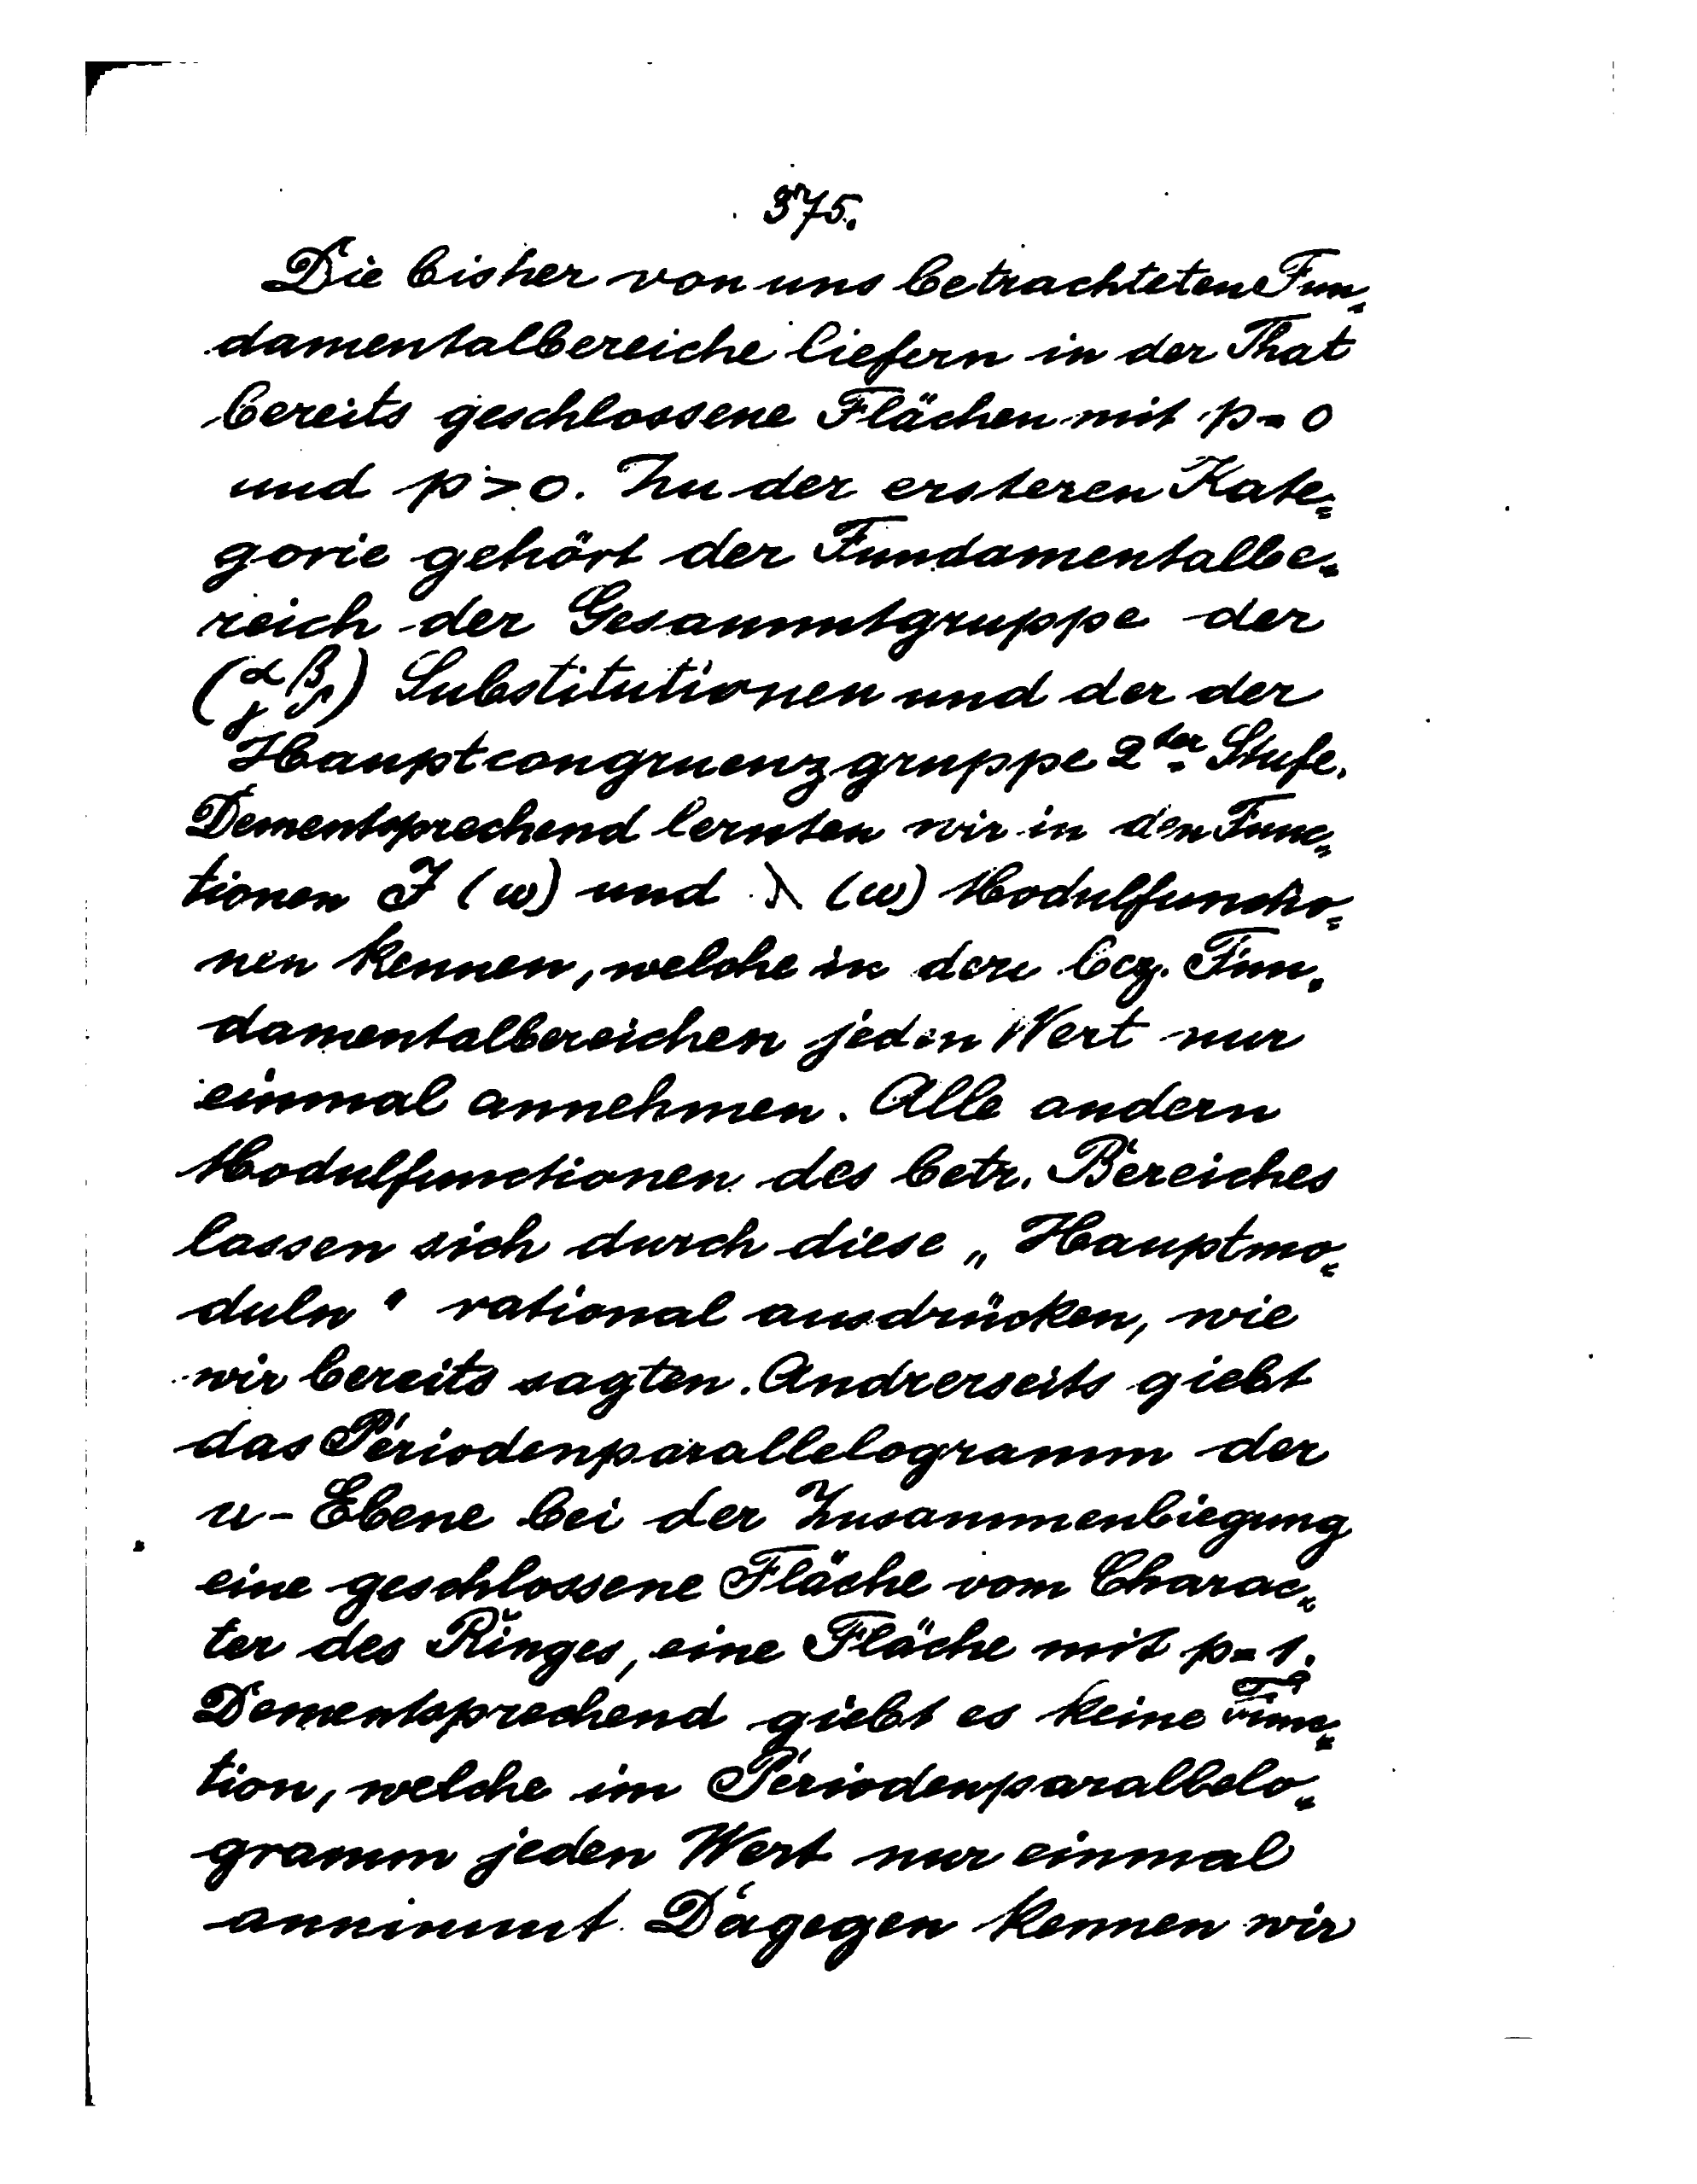 375.
Die bisher von uns betrachteten Fun-
damentalbereiche liefern in der That
bereits geschlossene Flächen mit p=0
und p>0. Zu der ersteren Kate-
gorie gehört der Fundamentalbe-
reich der Gesammtgruppe der
(α β γ δ) Substitutionen und der der
Hauptcongruenzgruppe 2ter Stufe.
Dementsprechend lernten wir in den Func-
tionen J (ω) und λ (ω) Modulfunctio-
nen kennen, welche in den bez. Fun-
damentalbereichen jeden Wert nur
einmal annehmen. Alle andern
Modulfunctionen des betr. Bereiches
lassen sich durch diese „Hauptmo-
duln“ rational ausdrücken, wie
wir bereits sagten. Andrerseits giebt
das Periodenparallelogramm der
u-Ebene bei der Zusammenbiegung
eine geschlossene Fläche vom Charac-
ter des Ringes, eine Fläche mit p=1.
Dementsprechend giebt es keine Func-
tion, welche im Periodenparallelo-
gramm jeden Wert nur einmal
annimmt. Dagegen kennen wir